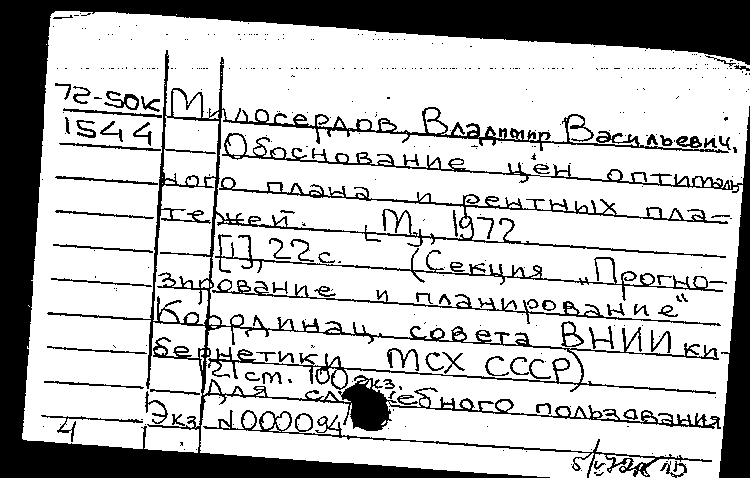 72-50к Милосердов, Владимир Васильевич.
1544 Обоснование цен оптималь
ного плана и рентных пла-
тежей. [М], 1972.
[1], 22 с. (Секция "Прогно-
зирование и планирование"
Координац. совета ВНИИ ки-
бернетики МСХ СССР).
21 см. 100 экз.
Для служебного пользования
4 Экз №000094